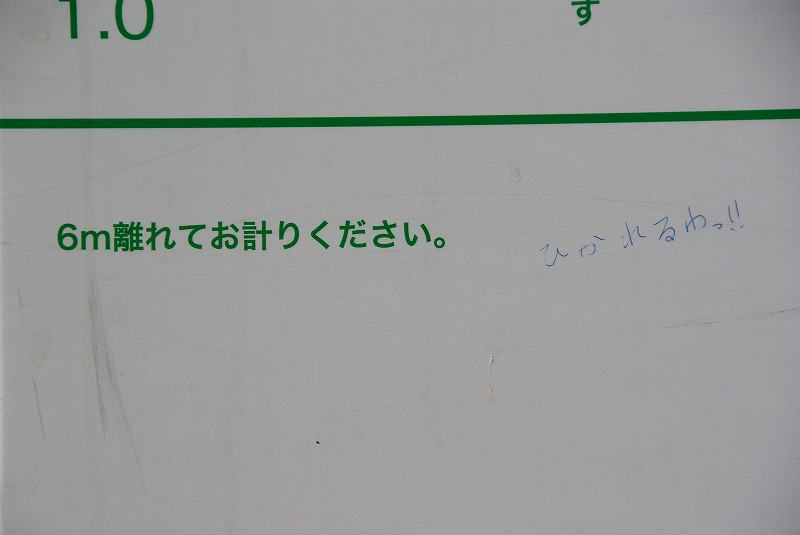 1.0 す
6m離れてお計りください。 ひかれるわっ!!